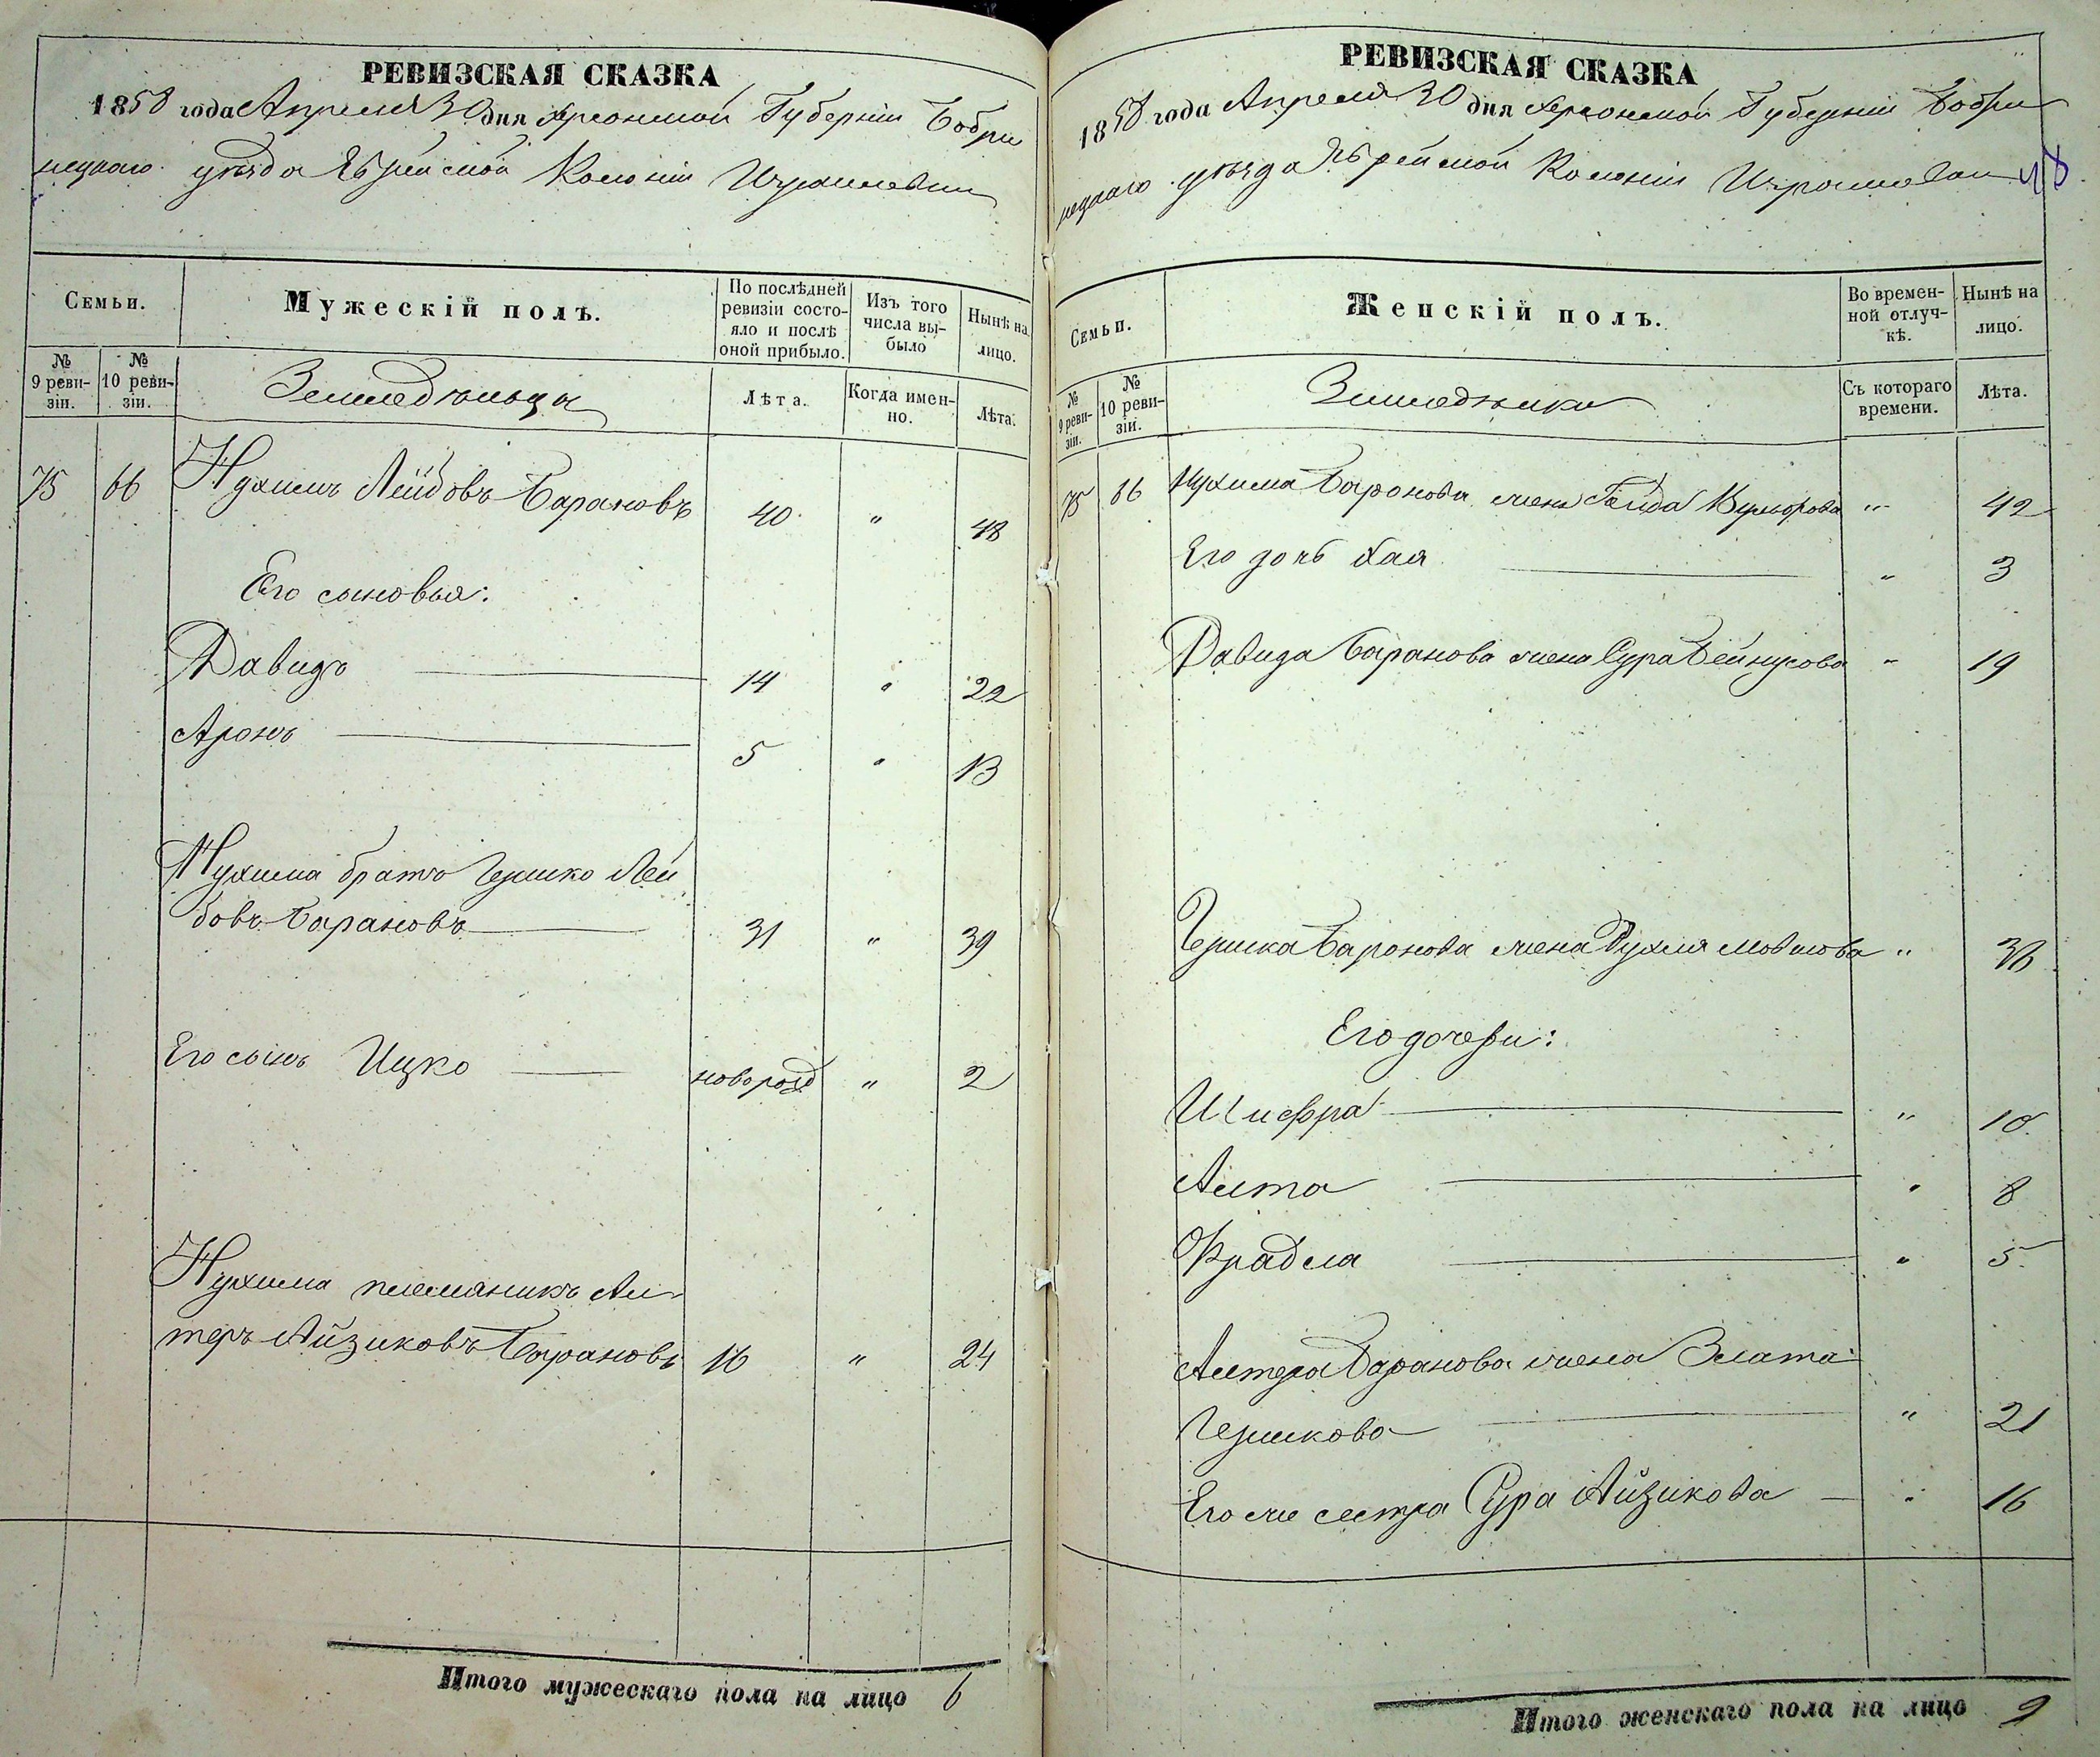 РЕВИЗСКАЯ СКАЗКА
1858 года Апреля 30 дня Херсонской Губерніи Бобри
нецкаго уѣзда Еврейской Колоніи Израилевки
Семьи.
Мужескій полъ.
По послѣдней ревизіи состояло и послѣ оной прибыло.
Изъ того числа вы-было
Нынѣ на лицо.
№ 9 реви-зіи.
№ 10 реви-зіи.
Земледѣльцы
Лѣта.
Когда имен-но.
Лѣта.
75 66 Нухимъ Лейбовъ Барановъ 40 " 48
Его сыновья:
Давидъ 14 " 22
Аронъ 5 " 13
Нухима братъ Гершко Лей
бовъ Барановъ 31 " 39
Его сынъ Ицко новорожд " 2
Нухима племяникъ Ал-
теръ Айзиковъ Барановъ 16 " 24
Итого мужескаго пола на лицо 6
РЕВИЗСКАЯ СКАЗКА
1858 года Апреля 30 дня Херсонской Губерніи Бобри
нецкаго уѣзда Еврейской Колоніи Израилевки
Семьи.
Женскій полъ.
Во времен-ной отлуч-кѣ.
Нынѣ на лицо.
№ 9 реви-зіи.
№ 10 реви-зіи.
Съ котораго времени.
Лѣта.
75 66 Нухима Баранова жена 42
Его дочь Хая " 3
Давида Баранова жена Сура " 19
Гершка Баранова жена Рухля Мовшова " 36
Его дочери:
Шифра " 10
Алта " 8
Фрадля " 5
Алтера Баранова жена Злата
Гершкова " 21
Его же сестра Сура Айзикова " 16
Итого женскаго пола на лицо 9